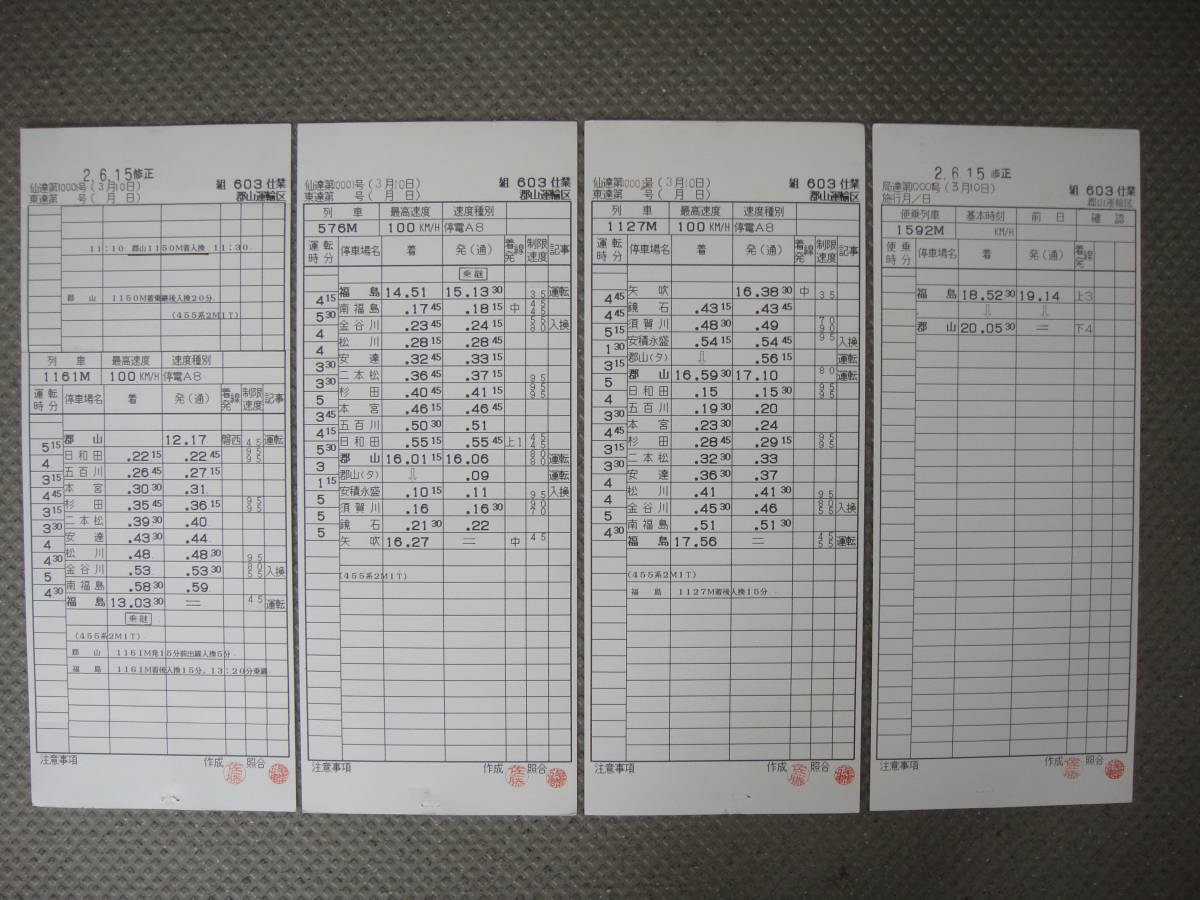 2.6.15修正
仙達第10001号(3月10日) 組 603仕業
東達第 号( 月 日) 郡山運輸区
11:10 郡山1150M着入換 11:30
郡 山 1150M着東継後入換20分
(455系2M1T)
列 車 最高速度 速度種別
1161M 100KM/H 停電A8
運転時分 停車場名 着 発(通) 着線発 制限速度 記事
郡 山 12.17 磐西 45 運転
5 15
日和田 .22 15 .22 45 95 95
4
五百川 .26 45 .27 15
3 15
本 宮 .30 30 .31
4 45
杉 田 .35 45 .36 15 95 95
3 15
二本松 .39 30 .40
3 30
安 達 .43 30 .44
4
松 川 .48 .48 30 95
4 30
金谷川 .53 .53 30 80 55 入換
5
南福島 .58 30 .59
4 30
福 島 13.03 30 = 45 運転
乗継
(455系2M1T)
郡 山 1161M発15分前出線入換5分
福 島 1161M着後入換15分,13:20分乗継
注意事項 作成 佐藤 照合
仙達第10001号(3月10日) 組 603仕業
東達第 号( 月 日) 郡山運輸区
列 車 最高速度 速度種別
576M 100KM/H 停電A8
運転時分 停車場名 着 発(通) 着線発 制限速度 記事
乗継
福 島 14.51 15.13 30 35 運転
4 15
南福島 .17 45 .18 15 中 45 45
5 30
金谷川 .23 45 .24 15 入換
4
松 川 .28 15 .28 45
4
安 達 .32 45 .33 15
3 30
二本松 .36 45 .37 15 95
3 30
杉 田 .40 45 .41 15 95 95
5
本 宮 .46 15 .46 45
3 45
五百川 .50 30 .51
4 15
日和田 .55 15 .55 45 上1 45 45
5 30
郡 山 16.01 15 16.06 80 80 運転
3
郡山(タ) ⇩ .09 運転
1 15
安積永盛 .10 15 .11 95 入換
5
須賀川 .16 .16 30 90 70
5
鏡 石 .21 30 .22
5
矢 吹 16.27 = 中 45
(455系2M1T)
注意事項 作成 佐藤 照合
仙達第10001号(3月10日) 組 603仕業
東達第 号( 月 日) 郡山運輸区
列 車 最高速度 速度種別
1127M 100KM/H 停電A8
運転時分 停車場名 着 発(通) 着線発 制限速度 記事
矢 吹 16.38 30 中 35
4 45
鏡 石 .43 15 .43 45
4 45
須賀川 .48 30 .49 70 90
5 15
安積永盛 .54 15 .54 45 95 入換
1 30
郡山(タ) ⇩ .56 15 運転
3 15
郡 山 16.59 30 17.10 80 運転
5
日和田 .15 .15 30 95 95
4
五百川 .19 30 .20
3 30
本 宮 .23 30 .24
4 45
杉 田 .28 45 .29 15 95 95
3 15
二本松 .32 30 .33
3 30
安 達 .36 30 .37
4
松 川 .41 .41 30 95
4
金谷川 .45 30 .46 80 55 入換
5
南福島 .51 .51 30
4 30
福 島 17.56 = 45 55 運転
(455系2M1T)
福 島 1127M着後入換15分
注意事項 作成 佐藤 照合
2.6.15 修正
局達第10001号(3月10日) 組 603仕業
施行月/日 郡山運輸区
便乗列車 基本時刻 前 日 確 認
1592M
便乗時分 停車場名 着 発(通) 着線発
福 島 18.52 30 19.14 上3
⇩ ⇩
郡 山 20.05 30 = 下4
注意事項 作成 佐藤 照合